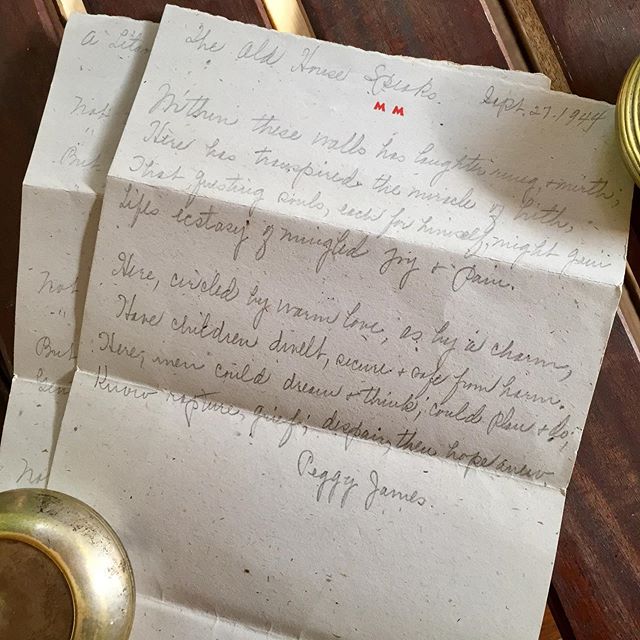 The Old House Speaks. Sept. 27-1944
M M
Within these walls has laughter rung, + mirth;
Here has transpired the miracle of birth,
That questing souls, each for himself, might gain
Life's ecstasy of mingled joy + pain.
Here, circled by warm love, as by a charm,
Have children dwelt, secure + safe from harm.
Here, men could dream + think, could plan + do
Know rapture, grief, dispair, then hope anew
Peggy James.
A
Not
"
But
Not
"
But